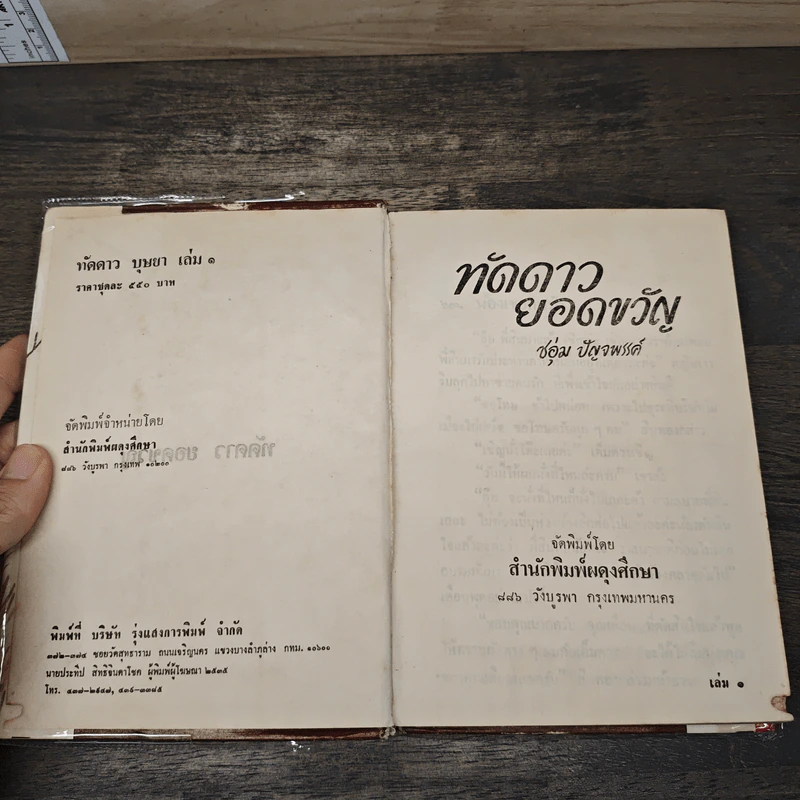 ทัดดาว บุษยา เล่ม ๑
ราคาชุดละ ๕๕๐ บาท
จัดพิมพ์จำหน่ายโดย
สำนักพิมพ์ผดุงศึกษา
๘๘๖ วังบูรพา กรุงเทพ ๑๐๒๐๐
พิมพ์ที่ บริษัท รุ่งแสงการพิมพ์ จำกัด
๓๗๒-๓๗๔ ซอยวัดสุทธาราม ถนนเจริญนคร แขวงบางลำภูล่าง กทม. ๑๐๖๐๐
นายประทีป สิทธิจินดาโชค ผู้พิมพ์ผู้โฆษณา ๒๕๓๕
โทร. ๔๓๗-๒๕๔๗, ๔๓๖-๓๓๘๕
ทัดดาว
ยอดขวัญ
ชอุ่ม ปัญจพรรค์
จัดพิมพ์โดย
สำนักพิมพ์ผดุงศึกษา
๘๘๖ วังบูรพา กรุงเทพมหานคร
เล่ม ๑